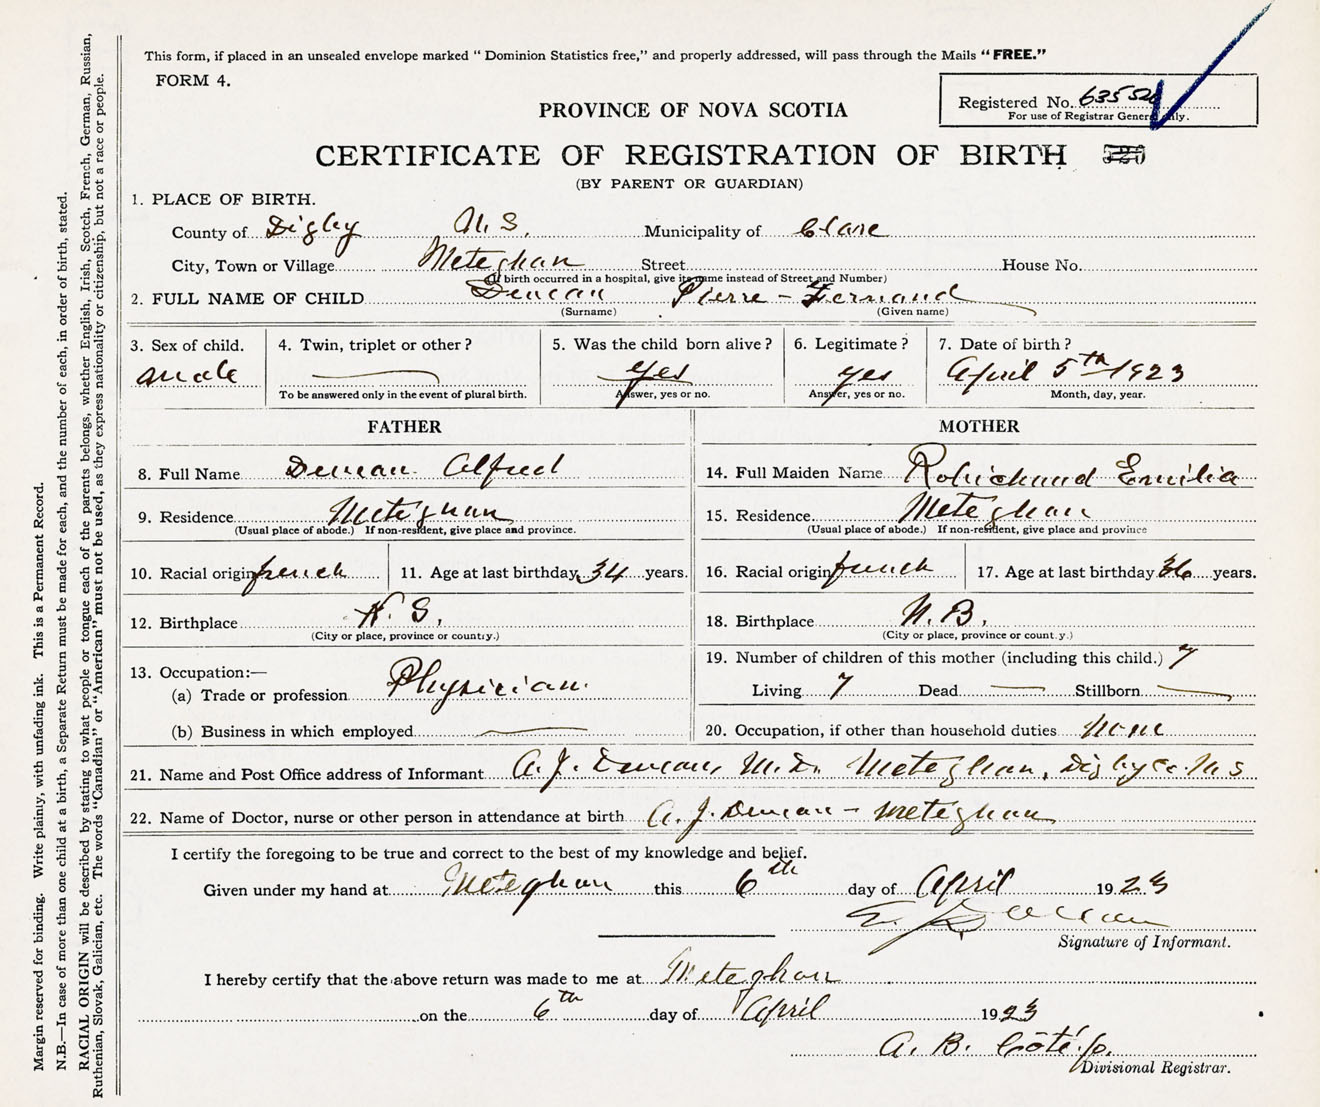 This form, if placed in an unsealed envelope marked “ Dominion Statistics free,” and properly addressed, will pass through the Mails “ FREE.”
FORM 4.
Registered No. 6355
For use of Registrar General only.
PROVINCE OF NOVA SCOTIA
CERTIFICATE OF REGISTRATION OF BIRTH
(BY PARENT OR GUARDIAN)
1. PLACE OF BIRTH.
County of Digby N. S. Municipality of Clare
City, Town or Village Meteghan Street House No.
(If birth occurred in a hospital, give its name instead of Street and Number)
2. FULL NAME OF CHILD Duncan Pierre - Fernand
(Surname) (Given name)
3. Sex of child. 4. Twin, triplet or other ? 5. Was the child born alive ? 6. Legitimate ? 7. Date of birth ?
male — yes yes April 5th 1923
To be answered only in the event of plural birth. Answer, yes or no. Answer, yes or no. Month, day, year.
FATHER MOTHER
8. Full Name Duncan Alfred 14. Full Maiden Name Robichaud Emilia
9. Residence Meteghan 15. Residence Meteghan
(Usual place of abode.) If non-resident, give place and province. (Usual place of abode.) If non-resident, give place and province
10. Racial origin french 11. Age at last birthday 34 years. 16. Racial origin french 17. Age at last birthday 36 years.
12. Birthplace N. S. 18. Birthplace N. B.
(City or place, province or country.) (City or place, province or count.y.)
13. Occupation:— 19. Number of children of this mother (including this child.) 7
(a) Trade or profession Physician Living 7 Dead — Stillborn —
(b) Business in which employed — 20. Occupation, if other than household duties None
21. Name and Post Office address of Informant A. J. Duncan, M. D. Meteghan, Digby Co. N. S
22. Name of Doctor, nurse or other person in attendance at birth A. J. Duncan - Meteghan
I certify the foregoing to be true and correct to the best of my knowledge and belief.
Given under my hand at Meteghan this 6th day of April 1923
Duncan
Signature of Informant.
I hereby certify that the above return was made to me at Meteghan
on the 6th day of April 1923
A. B. Côté
Divisional Registrar.
Margin reserved for binding. Write plainly, with unfading ink. This is a Permanent Record.
N.B.—In case of more than one child at a birth, a Separate Return must be made for each, and the number of each, in order of birth, stated.
RACIAL ORIGIN will be described by stating to what people or tongue each of the parents belongs, whether English, Irish, Scotch, French, German, Russian,
Ruthenian, Slovak, Galician, etc. The words “Canadian” or “American” must not be used, as they express nationality or citizenship, but not a race or people.